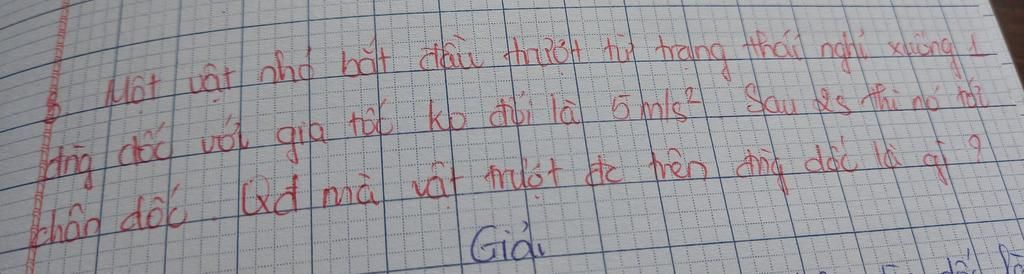 Một vật nhỏ bắt đầu trượt từ trạng thái nghỉ xuống 1
đng dốc với gia tốc ko đổi là 5 m/s² Sau 2s thì nó tới
chân dốc. Qđ mà vật trượt đc trên đng dốc là gì?
Giải